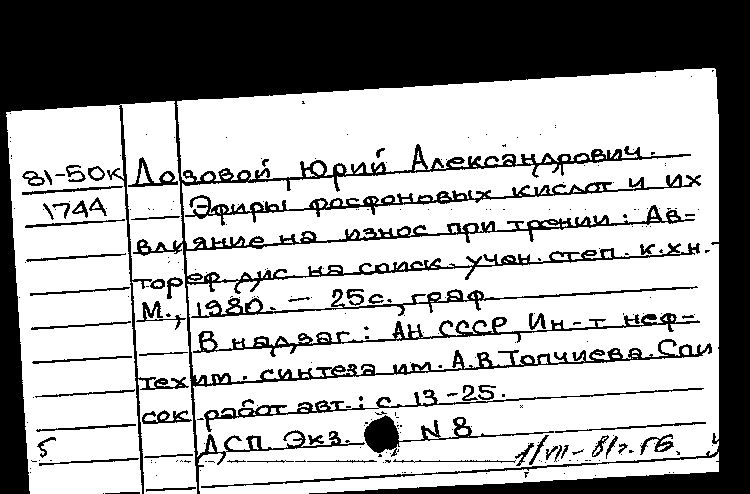 81-50к Лозовой, Юрий Александрович.
1744 Эфиры фосфоновых кислот и их
влияние на износ при трении: Ав=
тореф. дис. на соиск. учен. степ. к.х.н.-
М., 1980. - 25с., граф.
В надзаг.: АН СССР, Ин-т неф=
техим. синтеза им. А.В.Топчиева. Спи
сок работ авт.: с. 13-25.
5 ДСП. Экз. N 8.